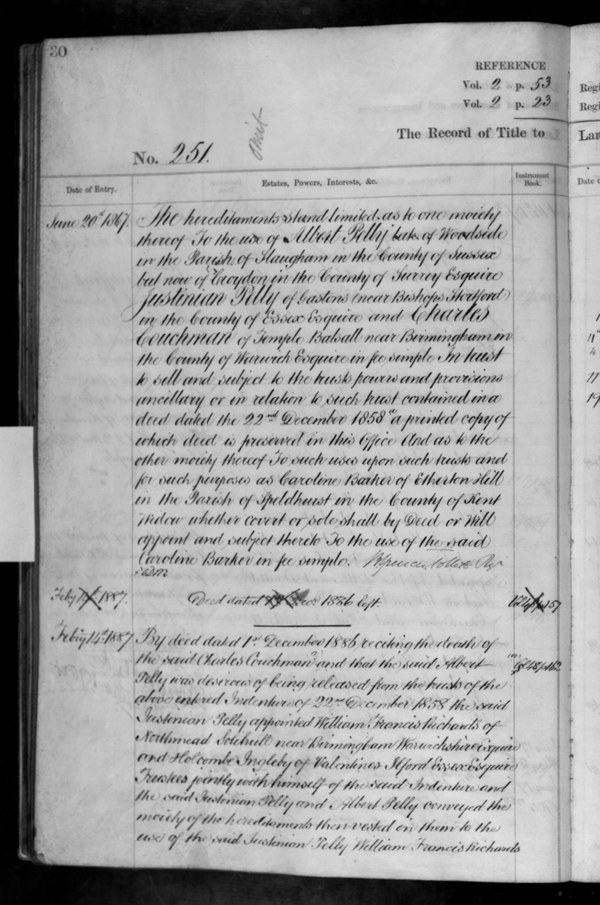 30
REFERENCE
Vol. 2 p. 53
Vol. 2 p. 23
The Record of Title to
No. 251.
Date of Entry.
Estates, Powers, Interests, &c.
Instrument Book.
June 20th 1867
The hereditaments stand limited as to one moiety
thereof To the use of Albert Pelly late of Woodside
in the Parish of Slaugham in the County of Sussex
but now of Croydon in the County of Surrey Esquire
Justinian Pelly of Gastons near Bishops Stortford
in the County of Essex Esquire and Charles
Couchman of Temple Balsall near Birmingham in
the County of Warwick Esquire in fee simple In trust
to sell and subject to the trusts powers and provisions
ancillary or in relation to such trust contained in a
deed dated the 22nd December 1858 a printed copy of
which deed is preserved in this Office And as to the
other moiety thereof To such uses upon such trusts and
for such purposes as Caroline Barker of Etherton Hill
in the Parish of Speldhurst in the County of Kent
Widow whether covert or sole shall by Deed or Will
appoint and subject thereto To the use of the said
Caroline Barker in fee simple.
Feby 1887.
Deed dated 1886 left
Feby 14th 1887
By deed dated 1st December 1886 reciting the death of
the said Charles Couchman and that the said Albert
Pelly was desirous of being released from the trusts of the
above entered Indenture of 22nd December 1858 the said
Justinian Pelly appointed William Francis Richards of
Northmead Solehull near Birmingham Warwickshire Esquire
and Holcombe Ingleby of Valentines Ilford Essex Esquire
Trustees jointly with himself of the said Indenture and
the said Justinian Pelly and Albert Pelly conveyed the
moiety of the hereditaments then vested in them to the
use of the said Justinian Pelly William Francis Richards
Regi
Regi
Lan
Date o